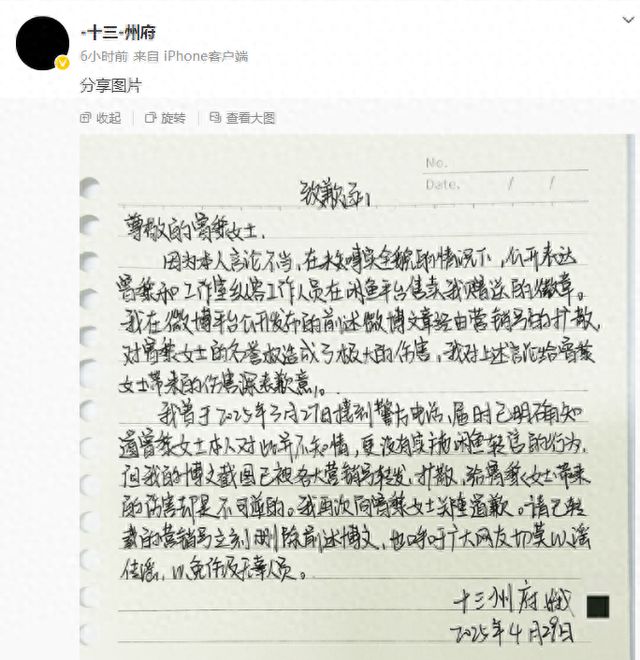 -十三-州府
6小时前 来自 iPhone客户端
分享图片
收起 旋转 查看大图
No.
Date. / /
致歉运1
尊敬的曾黎女士.
因为本人言论不当,在未核实全貌的情况下,公开表达
曾黎和工作室纵容工作人员在闲鱼平台售卖我赠送的徽章。
我在微博平台公开发布的前述微博文章经由营销号的扩散,
对曾黎女士的名誉权造成了极大的伤害,我对上述言论给曾黎
女士带来的伤害深表歉意。
我曾于2025年3月27日接到警方电话,届时已明确知
道曾黎女士本人对此并不知情,更没有实施闲鱼转售的行为,
但我的博文截图已被各大营销号转发、扩散,给曾黎女士带来
的伤害却是不可逆的。我再次向曾黎女士郑重道歉。请已转
载的营销号立刻删除前述博文,也呼吁广大网友切莫以谣
传谣,以免伤及无辜人员。
十三州府
2025年4月29日